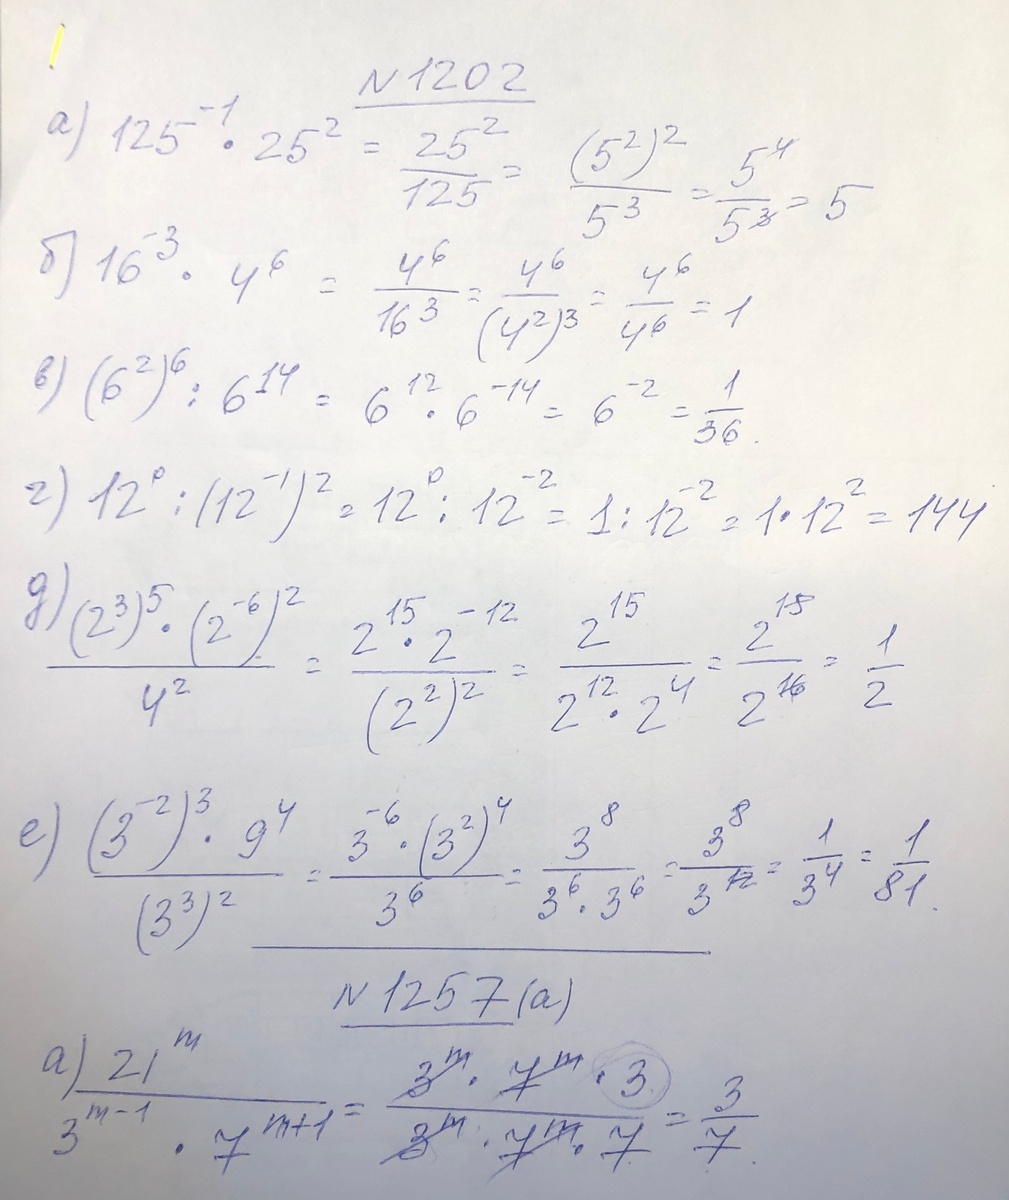 N 1202
а) 125^{-1} · 25^2 = \frac{25^2}{125} = \frac{(5^2)^2}{5^3} = \frac{5^4}{5^3} = 5
б) 16^{-3} · 4^6 = \frac{4^6}{16^3} = \frac{4^6}{(4^2)^3} = \frac{4^6}{4^6} = 1
в) (6^2)^6 : 6^{14} = 6^{12} · 6^{-14} = 6^{-2} = \frac{1}{36}.
г) 12^0 : (12^{-1})^2 = 12^0 : 12^{-2} = 1 : 12^{-2} = 1 · 12^2 = 144
д) \frac{(2^3)^5 · (2^{-6})^2}{4^2} = \frac{2^{15} · 2^{-12}}{(2^2)^2} = \frac{2^{15}}{2^{12} · 2^4} = \frac{2^{15}}{2^{16}} = \frac{1}{2}
е) \frac{(3^{-2})^3 · 9^4}{(3^3)^2} = \frac{3^{-6} · (3^2)^4}{3^6} = \frac{3^8}{3^6 · 3^6} = \frac{3^8}{3^{12}} = \frac{1}{3^4} = \frac{1}{81}.
N 1257 (а)
а) \frac{21^m}{3^{m-1} · 7^{m+1}} = \frac{3^m · 7^m · 3}{3^m · 7^m · 7} = \frac{3}{7}.